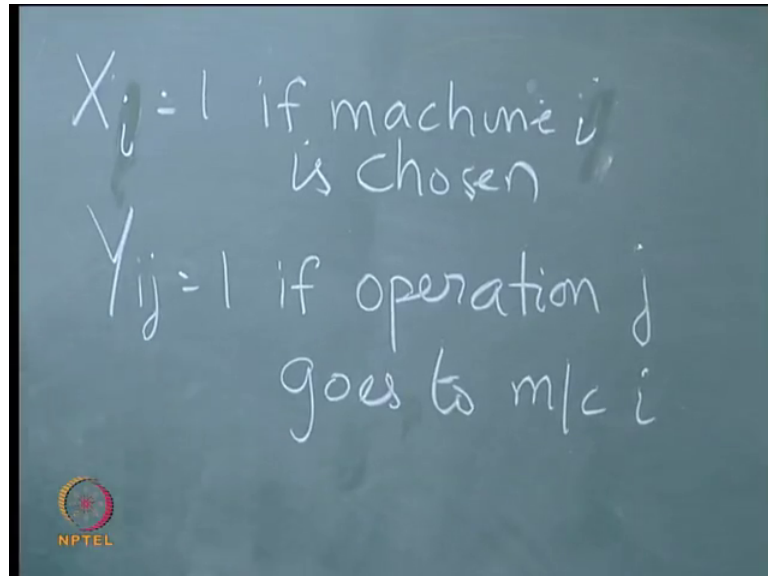 Xi = 1 if machine i
is chosen
Yij = 1 if operation j
goes to m/c i
NPTEL